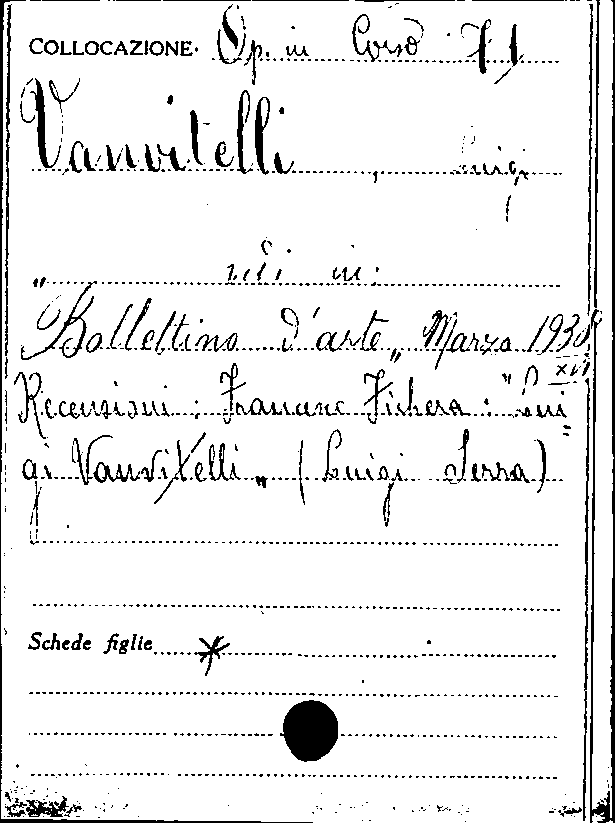 COLLOCAZIONE· Op. in Corso 71
Vanvitelli, Luigi
vedi in:
"Bollettino d'arte„ Marzo 1938
XVI
Recensioni: Francesc Fichera: "Lui=
gi Vanvitelli„ (Luigi Serra)
Schede figlie *